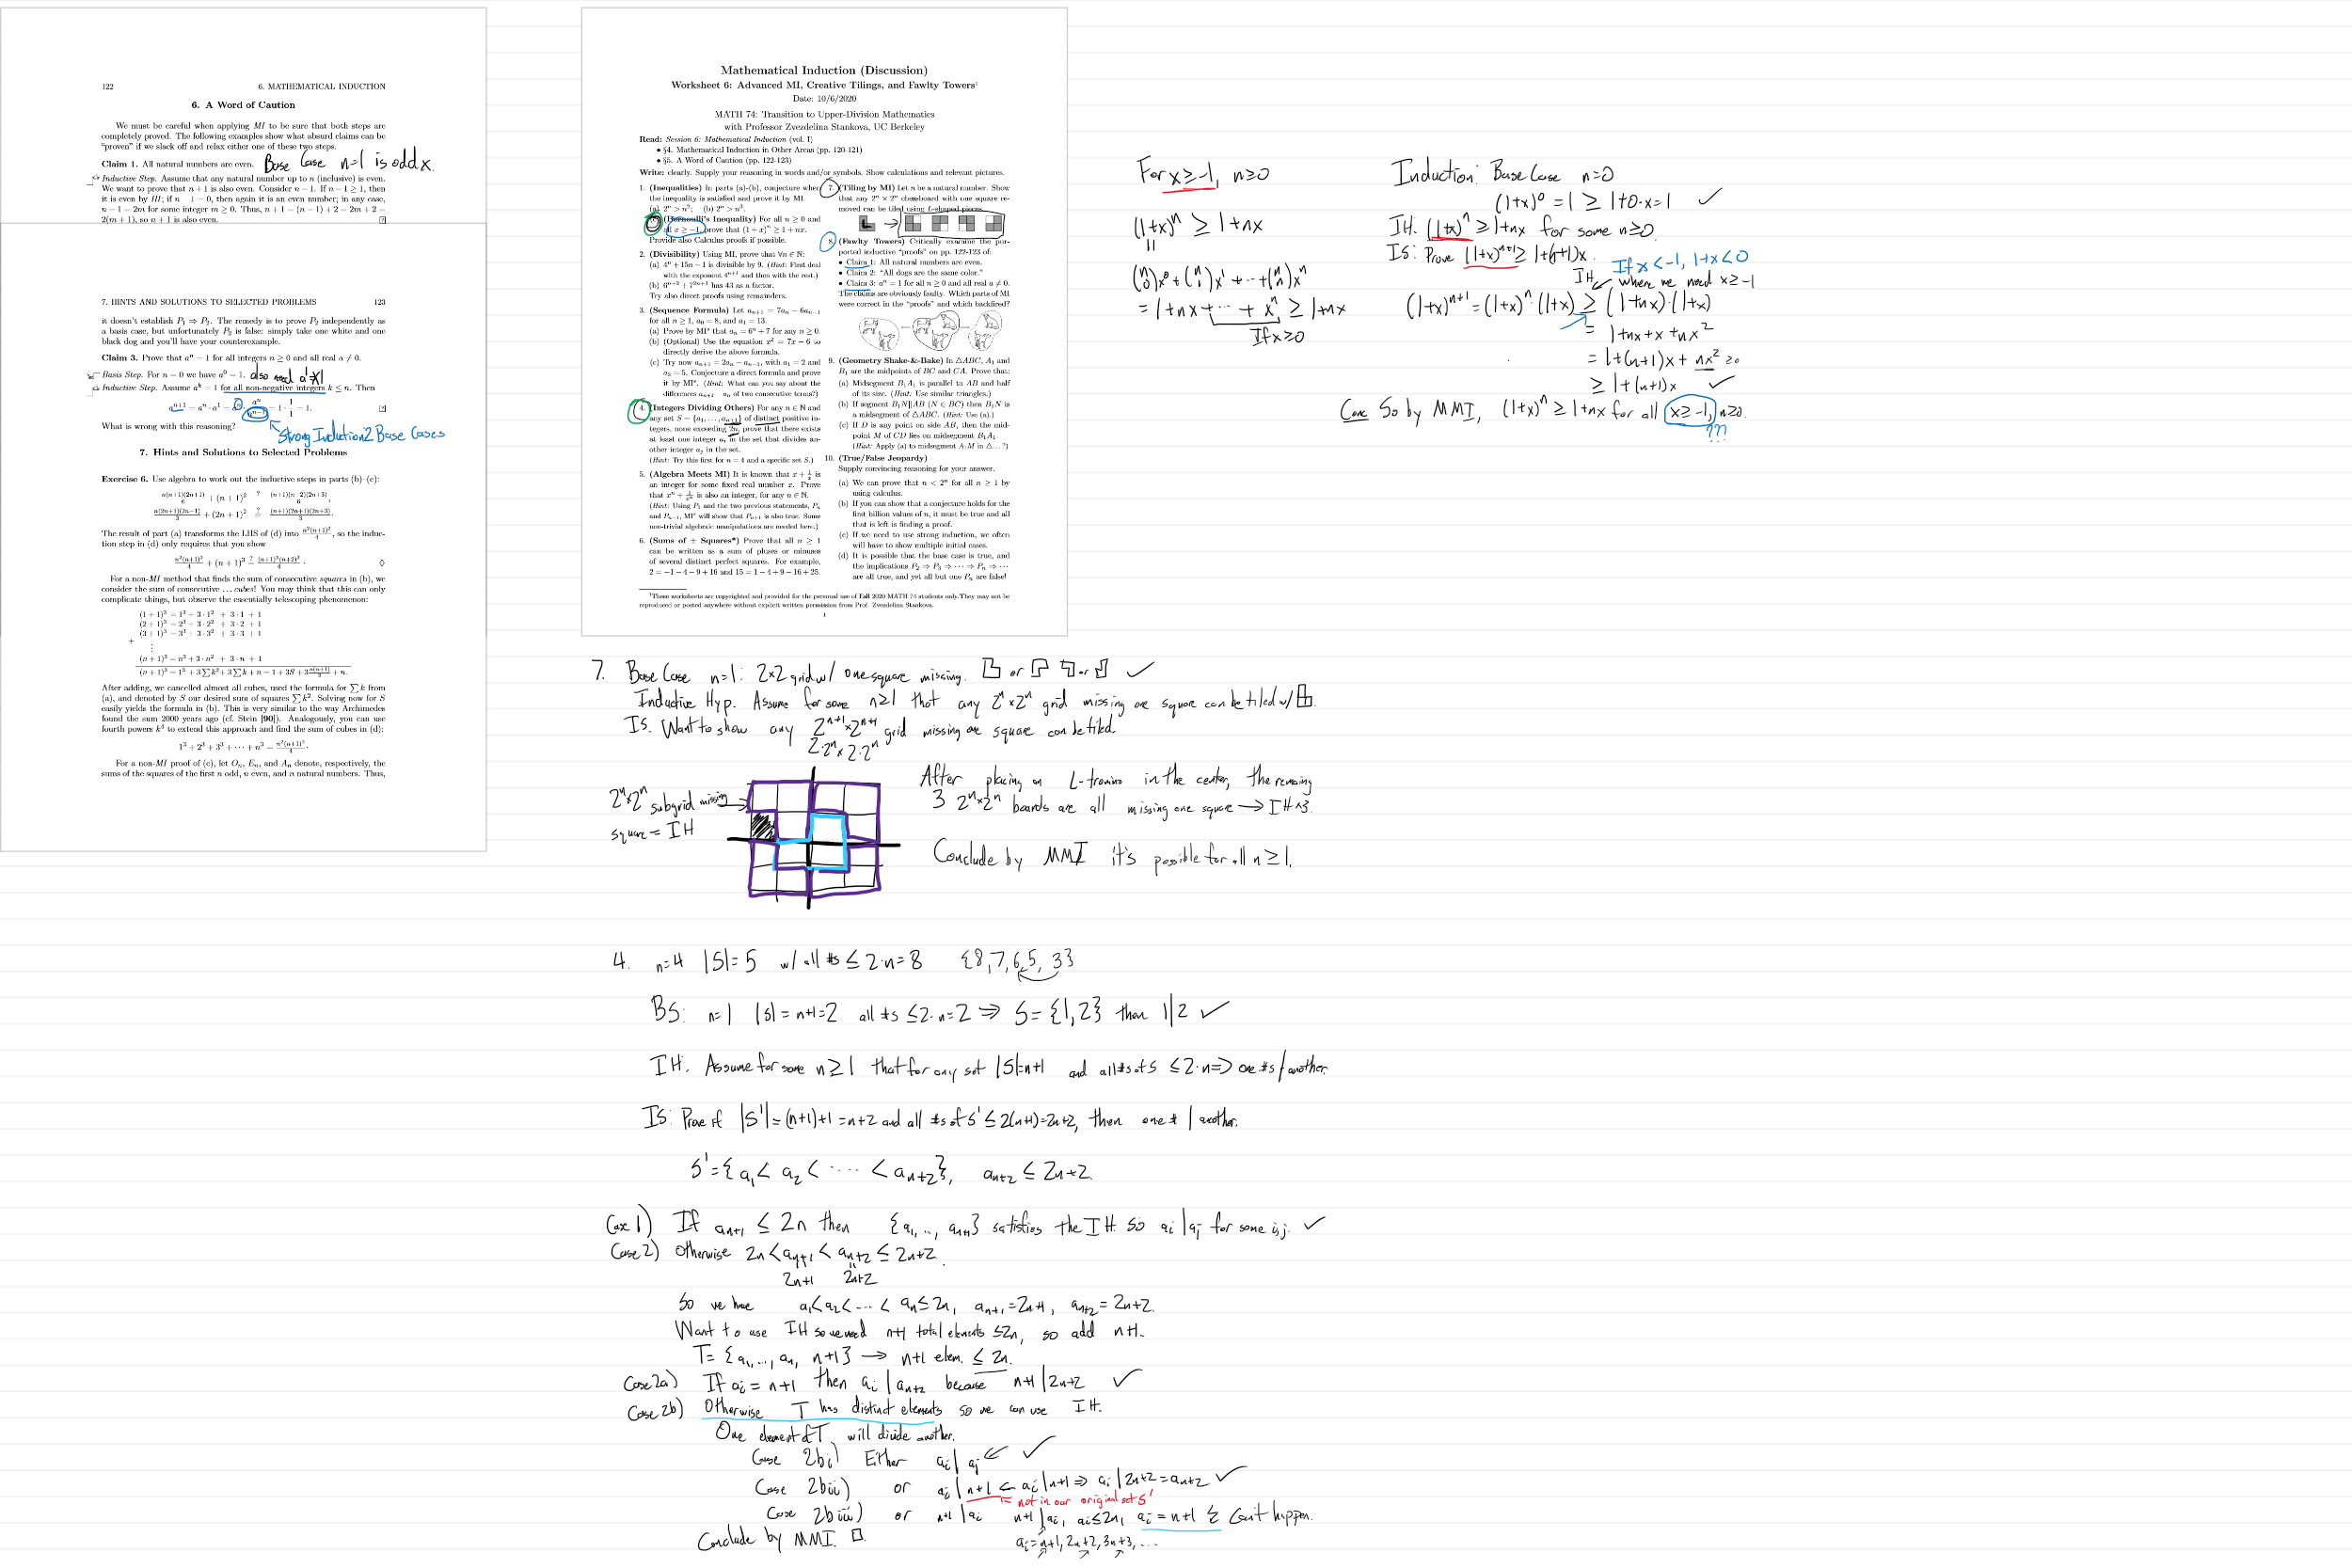 122 6. MATHEMATICAL INDUCTION
6. A Word of Caution
We must be careful when applying MI to be sure that both steps are
completely proved. The following examples show what absurd claims can be
"proven" if we slack off and relax either one of these two steps.
Claim 1. All natural numbers are even. Base Case n=1 is odd x.
Inductive Step. Assume that any natural number up to n (inclusive) is even.
We want to prove that n + 1 is also even. Consider n − 1. If n − 1 ≥ 1, then
it is even by IH; if n − 1 = 0, then again it is an even number; in any case,
n − 1 = 2m for some integer m ≥ 0. Thus, n + 1 = (n − 1) + 2 = 2m + 2 =
2(m + 1), so n + 1 is also even.
7. HINTS AND SOLUTIONS TO SELECTED PROBLEMS 123
it doesn't establish P₁ ⇒ P₂. The remedy is to prove P₂ independently as
a basis case, but unfortunately P₂ is false: simply take one white and one
black dog and you'll have your counterexample.
Claim 3. Prove that aⁿ = 1 for all integers n ≥ 0 and all real a ≠ 0.
Basis Step. For n = 0 we have a⁰ = 1. also need
Inductive Step. Assume aᵏ = 1 for all non-negative integers k ≤ n. Then
What is wrong with this reasoning?
Strong Induction 2 Base Cases
7. Hints and Solutions to Selected Problems
Exercise 6. Use algebra to work out the inductive steps in parts (b)–(c):
n(n+1)(2n+1)/6 + (n + 1)² ?= (n+1)(n+2)(2n+3)/6,
n(2n+1)(2n−1)/3 + (2n + 1)² ?= (n+1)(2n+1)(2n+3)/3.
The result of part (a) transforms the LHS of (d) into n²(n+1)²/4, so the induc-
tion step in (d) only requires that you show
n²(n+1)²/4 + (n + 1)³ ?= (n+1)²(n+2)²/4. ◊
For a non-MI method that finds the sum of consecutive squares in (b), we
consider the sum of consecutive ... cubes! You may think that this can only
complicate things, but observe the essentially telescoping phenomenon:
(1 + 1)³ = 1³ + 3 · 1² + 3 · 1 + 1
(2 + 1)³ = 2³ + 3 · 2² + 3 · 2 + 1
(3 + 1)³ = 3³ + 3 · 3² + 3 · 3 + 1
+ ⋮
(n + 1)³ = n³ + 3 · n² + 3 · n + 1
After adding, we cancelled almost all cubes, used the formula for ∑k from
(a), and denoted by S our desired sum of squares ∑k². Solving now for S
easily yields the formula in (b). This is very similar to the way Archimedes
found the sum 2000 years ago (cf. Stein [90]). Analogously, you can use
fourth powers k⁴ to extend this approach and find the sum of cubes in (d):
1³ + 2³ + 3³ + · · · + n³ = n²(n+1)²/4.
For a non-MI proof of (c), let Oₙ, Eₙ, and Aₙ denote, respectively, the
sums of the squares of the first n odd, n even, and n natural numbers. Thus,
Mathematical Induction (Discussion)
Worksheet 6: Advanced MI, Creative Tilings, and Fawlty Towers¹
Date: 10/6/2020
MATH 74: Transition to Upper-Division Mathematics
with Professor Zvezdelina Stankova, UC Berkeley
Read: Session 6: Mathematical Induction (vol. I)
• §4. Mathematical Induction in Other Areas (pp. 120-121)
• §5. A Word of Caution (pp. 122-123)
Write: clearly. Supply your reasoning in words and/or symbols. Show calculations and relevant pictures.
1. (Inequalities) In parts (a)-(b), conjecture when
the inequality is satisfied and prove it by MI.
(a) 2ⁿ > n²; (b) 2ⁿ > n³.
(Bernoulli's Inequality) For all n ≥ 0 and
all x ≥ −1, prove that (1 + x)ⁿ ≥ 1 + nx.
Provide also Calculus proofs if possible.
2. (Divisibility) Using MI, prove that ∀n ∈ ℕ:
(a) 4ⁿ + 15n − 1 is divisible by 9. (Hint: First deal
with the exponent 4ⁿ⁺¹ and then with the rest.)
(b) 6ⁿ⁺² + 7²ⁿ⁺¹ has 43 as a factor.
Try also direct proofs using remainders.
3. (Sequence Formula) Let aₙ₊₁ = 7aₙ − 6aₙ₋₁
for all n ≥ 1, a₀ = 8, and a₁ = 13.
(a) Prove by MI* that aₙ = 6ⁿ + 7 for any n ≥ 0.
(b) (Optional) Use the equation x² = 7x − 6 to
directly derive the above formula.
(c) Try now aₙ₊₁ = 2aₙ − aₙ₋₁, with a₁ = 2 and
a₂ = 5. Conjecture a direct formula and prove
it by MI*. (Hint: What can you say about the
differences aₙ₊₁ − aₙ of two consecutive terms?)
4. (Integers Dividing Others) For any n ∈ ℕ and
any set S = {a₁, . . . , aₙ₊₁} of distinct positive in-
tegers, none exceeding 2n, prove that there exists
at least one integer aᵢ in the set that divides an-
other integer aⱼ in the set.
(Hint: Try this first for n = 4 and a specific set S.)
5. (Algebra Meets MI) It is known that x + 1/x is
an integer for some fixed real number x. Prove
that xⁿ + 1/xⁿ is also an integer, for any n ∈ ℕ.
(Hint: Using P₁ and the two previous statements, Pₙ
and Pₙ₋₁, MI* will show that Pₙ₊₁ is also true. Some
non-trivial algebraic manipulations are needed here.)
6. (Sums of ± Squares*) Prove that all n ≥ 1
can be written as a sum of pluses or minuses
of several distinct perfect squares. For example,
2 = −1 − 4 − 9 + 16 and 15 = 1 − 4 + 9 − 16 + 25.
7. (Tiling by MI) Let n be a natural number. Show
that any 2ⁿ × 2ⁿ chessboard with one square re-
moved can be tiled using L-shaped pieces.
8. (Fawlty Towers) Critically examine the pur-
ported inductive "proofs" on pp. 122-123 of:
• Claim 1: All natural numbers are even.
• Claim 2: "All dogs are the same color."
• Claim 3: aⁿ = 1 for all n ≥ 0 and all real a ≠ 0.
The claims are obviously faulty. Which parts of MI
were correct in the "proofs" and which backfired?
9. (Geometry Shake-&-Bake) In △ABC, A₁ and
B₁ are the midpoints of BC and CA. Prove that:
(a) Midsegment B₁A₁ is parallel to AB and half
of its size. (Hint: Use similar triangles.)
(b) If segment B₁N∥AB (N ∈ BC) then B₁N is
a midsegment of △ABC. (Hint: Use (a).)
(c) If D is any point on side AB, then the mid-
point M of CD lies on midsegment B₁A₁.
(Hint: Apply (a) to midsegment A₁M in △...?)
10. (True/False Jeopardy)
Supply convincing reasoning for your answer.
(a) We can prove that n < 2ⁿ for all n ≥ 1 by
using calculus.
(b) If you can show that a conjecture holds for the
first billion values of n, it must be true and all
that is left is finding a proof.
(c) If we need to use strong induction, we often
will have to show multiple initial cases.
(d) It is possible that the base case is true, and
the implications P₂ ⇒ P₃ ⇒ · · · ⇒ Pₙ ⇒ · · ·
are all true, and yet all but one Pₙ are false!
¹These worksheets are copyrighted and provided for the personal use of Fall 2020 MATH 74 students only. They may not be
reproduced or posted anywhere without explicit written permission from Prof. Zvezdelina Stankova.
1
For x ≥ -1, n≥0
(1+x)ⁿ ≥ 1+nx
(n 0)x⁰ + (n 1)x¹ + ··· + (n n)xⁿ
= 1+nx+ ··· + xⁿ ≥ 1+nx
If x≥0
Induction: Base Case n=0
(1+x)⁰ = 1 ≥ 1+0·x=1 ✓
IH: (1+x)ⁿ ≥ 1+nx for some n≥0.
IS: Prove (1+x)ⁿ⁺¹ ≥ 1+(n+1)x.
If x < -1, 1+x<0
IH where we need x≥-1
(1+x)ⁿ⁺¹ = (1+x)ⁿ·(1+x) ≥ (1+nx)·(1+x)
= 1+nx+x+nx²
= 1+(n+1)x + nx² ≥0
≥ 1+(n+1)x ✓
Conc So by MMI, (1+x)ⁿ ≥ 1+nx for all x≥-1, n≥0.
???
7. Base Case n=1: 2×2 grid w/ one square missing. or or ✓
Inductive Hyp. Assume for some n≥1 that any 2ⁿ×2ⁿ grid missing one square can be tiled w/
IS. Want to show any 2ⁿ⁺¹×2ⁿ⁺¹ grid missing one square can be tiled.
2·2ⁿ×2·2ⁿ
2ⁿ×2ⁿ subgrid missing
square = IH
After placing an L-tromino in the center, the remaing
3 2ⁿ×2ⁿ boards are all missing one square → IH ×3.
Conclude by MMI it's possible for all n≥1.
4. n=4 |S|=5 w/ all #s ≤ 2·n=8 {8,7,6,5,3}
BS: n=1 |S|=n+1=2 all #s ≤2·n=2 ⇒ S={1,2} then 1|2 ✓
IH. Assume for some n≥1 that for any set |S|=n+1 and all #s of S ≤2·n ⇒ one #s | another.
IS: Prove if |S'|=(n+1)+1=n+2 and all #s of S' ≤ 2(n+1)=2n+2, then one # | another.
S'={a₁< a₂< ···· < aₙ₊₂}, aₙ₊₂ ≤ 2n+2.
Case 1) If aₙ₊₁ ≤ 2n then {a₁,..., aₙ₊₁} satisfies the IH. So aᵢ|aⱼ for some i,j. ✓
Case 2) Otherwise 2n<aₙ₊₁<aₙ₊₂≤2n+2.
2n+1 2n+2
So we have a₁<a₂<···< aₙ≤2n, aₙ₊₁=2n+1, aₙ₊₂=2n+2.
Want to use IH so we need n+1 total elements ≤2n, so add n+1.
T= {a₁,..., aₙ, n+1} → n+1 elem. ≤ 2n.
Case 2a) If aᵢ=n+1 then aᵢ|aₙ₊₂ because n+1|2n+2 ✓
Case 2b) Otherwise T has distinct elements so we can use IH.
One element of T will divide another.
Case 2bi) Either aᵢ|aⱼ ✓
Case 2bii) or aᵢ|n+1 aᵢ|n+1⇒ aᵢ|2n+2=aₙ₊₂ ✓
not in our original set S'
Case 2biii) or n+1|aᵢ n+1|aᵢ, aᵢ≤2n, aᵢ=n+1 Can't happen.
Conclude by MMI. □ aᵢ=n+1, 2n+2, 3n+3, ...